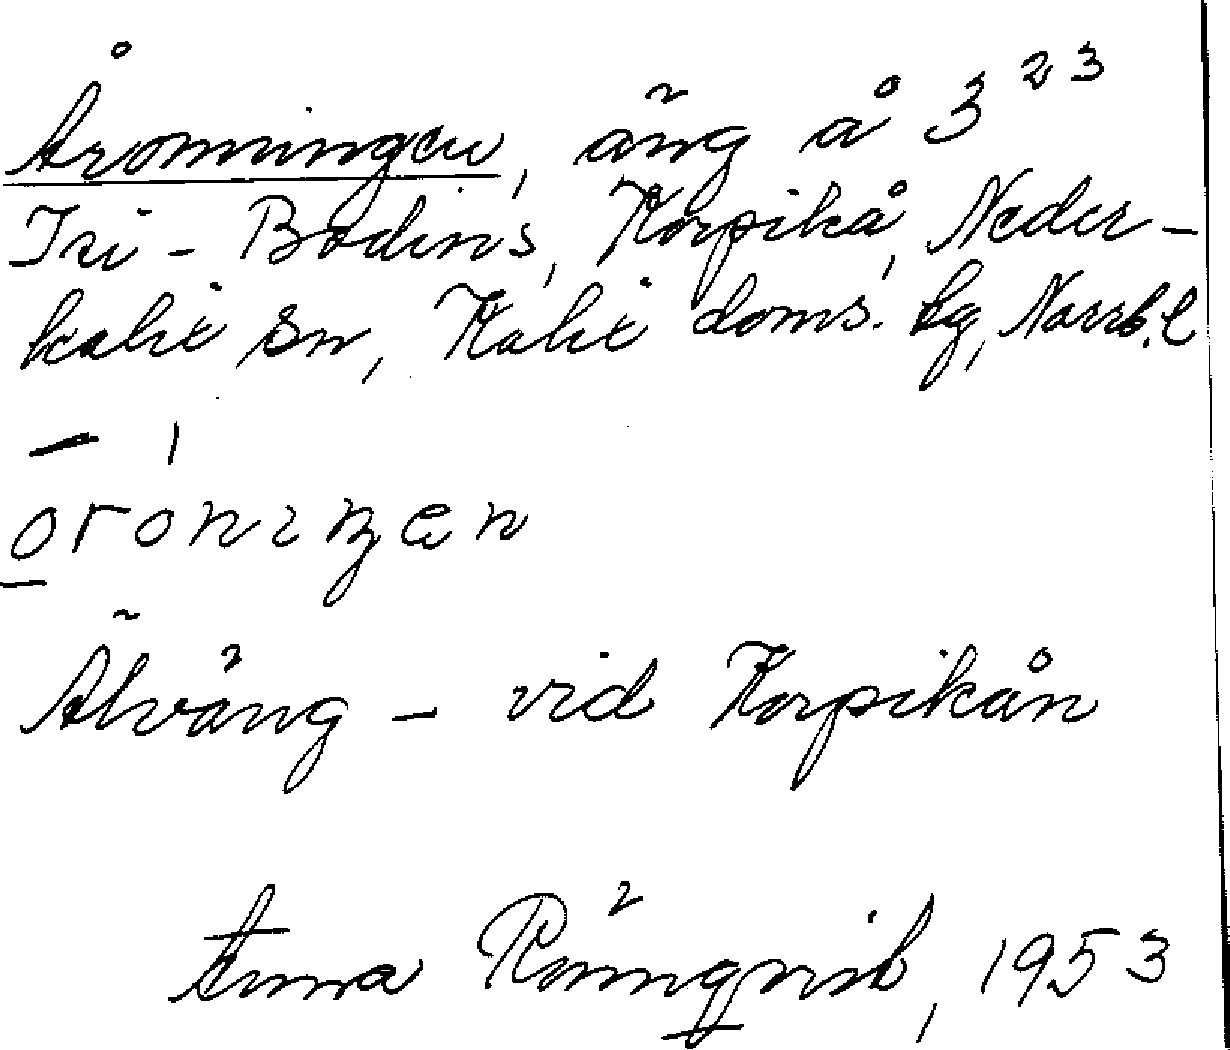 Åronningen, äng å 3²³
Isi-Bodens, Korpikå, Neder-
kalix sn, Kalix doms. tg, Norrb. l
oroniŋen
Älväng - vid Korpikån
Anna Rönnqvist, 1953